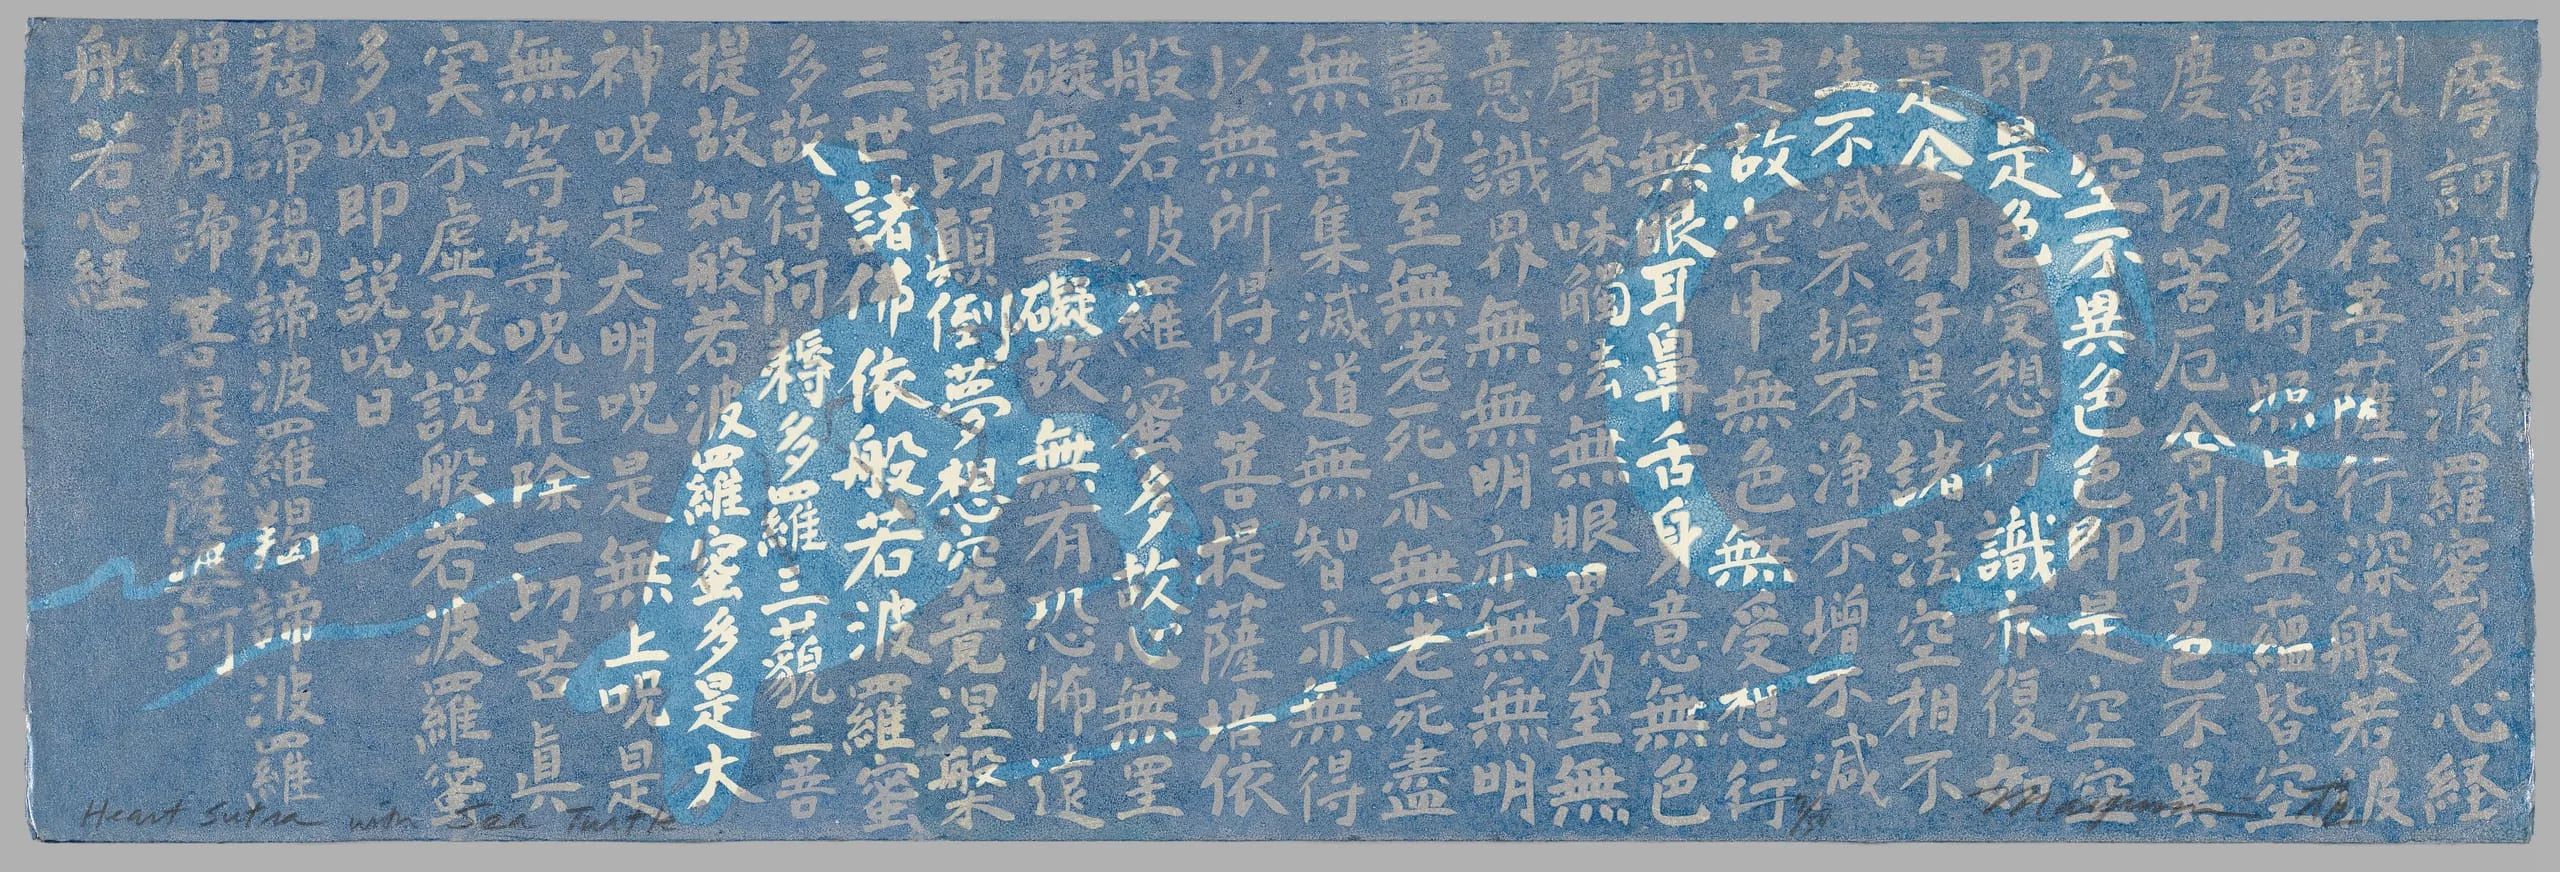 摩訶般若波羅蜜多心経
觀自在菩薩行深般若波
羅蜜多時照見五蘊皆空
度一切苦厄舎利子色不異
空空不異色色即是空空
即是色受想行識亦復如
是舎利子是諸法空相不
生不滅不垢不浄不増不減
是故空中無色無受想行
識無眼耳鼻舌身意無色
聲香味觸法無眼界乃至無
意識界無無明亦無無明
盡乃至無老死亦無老死盡
無苦集滅道無智亦無得
以無所得故菩提薩埵依
般若波羅蜜多故心無罣
礙無罣礙故無有恐怖遠
離一切顛倒夢想究竟涅槃
三世諸佛依般若波羅蜜
多故得阿耨多羅三藐三菩
提故知般若波羅蜜多是大
神呪是大明呪是無上呪是
無等等呪能除一切苦眞
実不虚故説般若波羅蜜
多呪即説呪曰
羯諦羯諦波羅羯諦波羅
僧羯諦菩提薩婆訶
般若心経
Heart Sutra with Sea Turtle